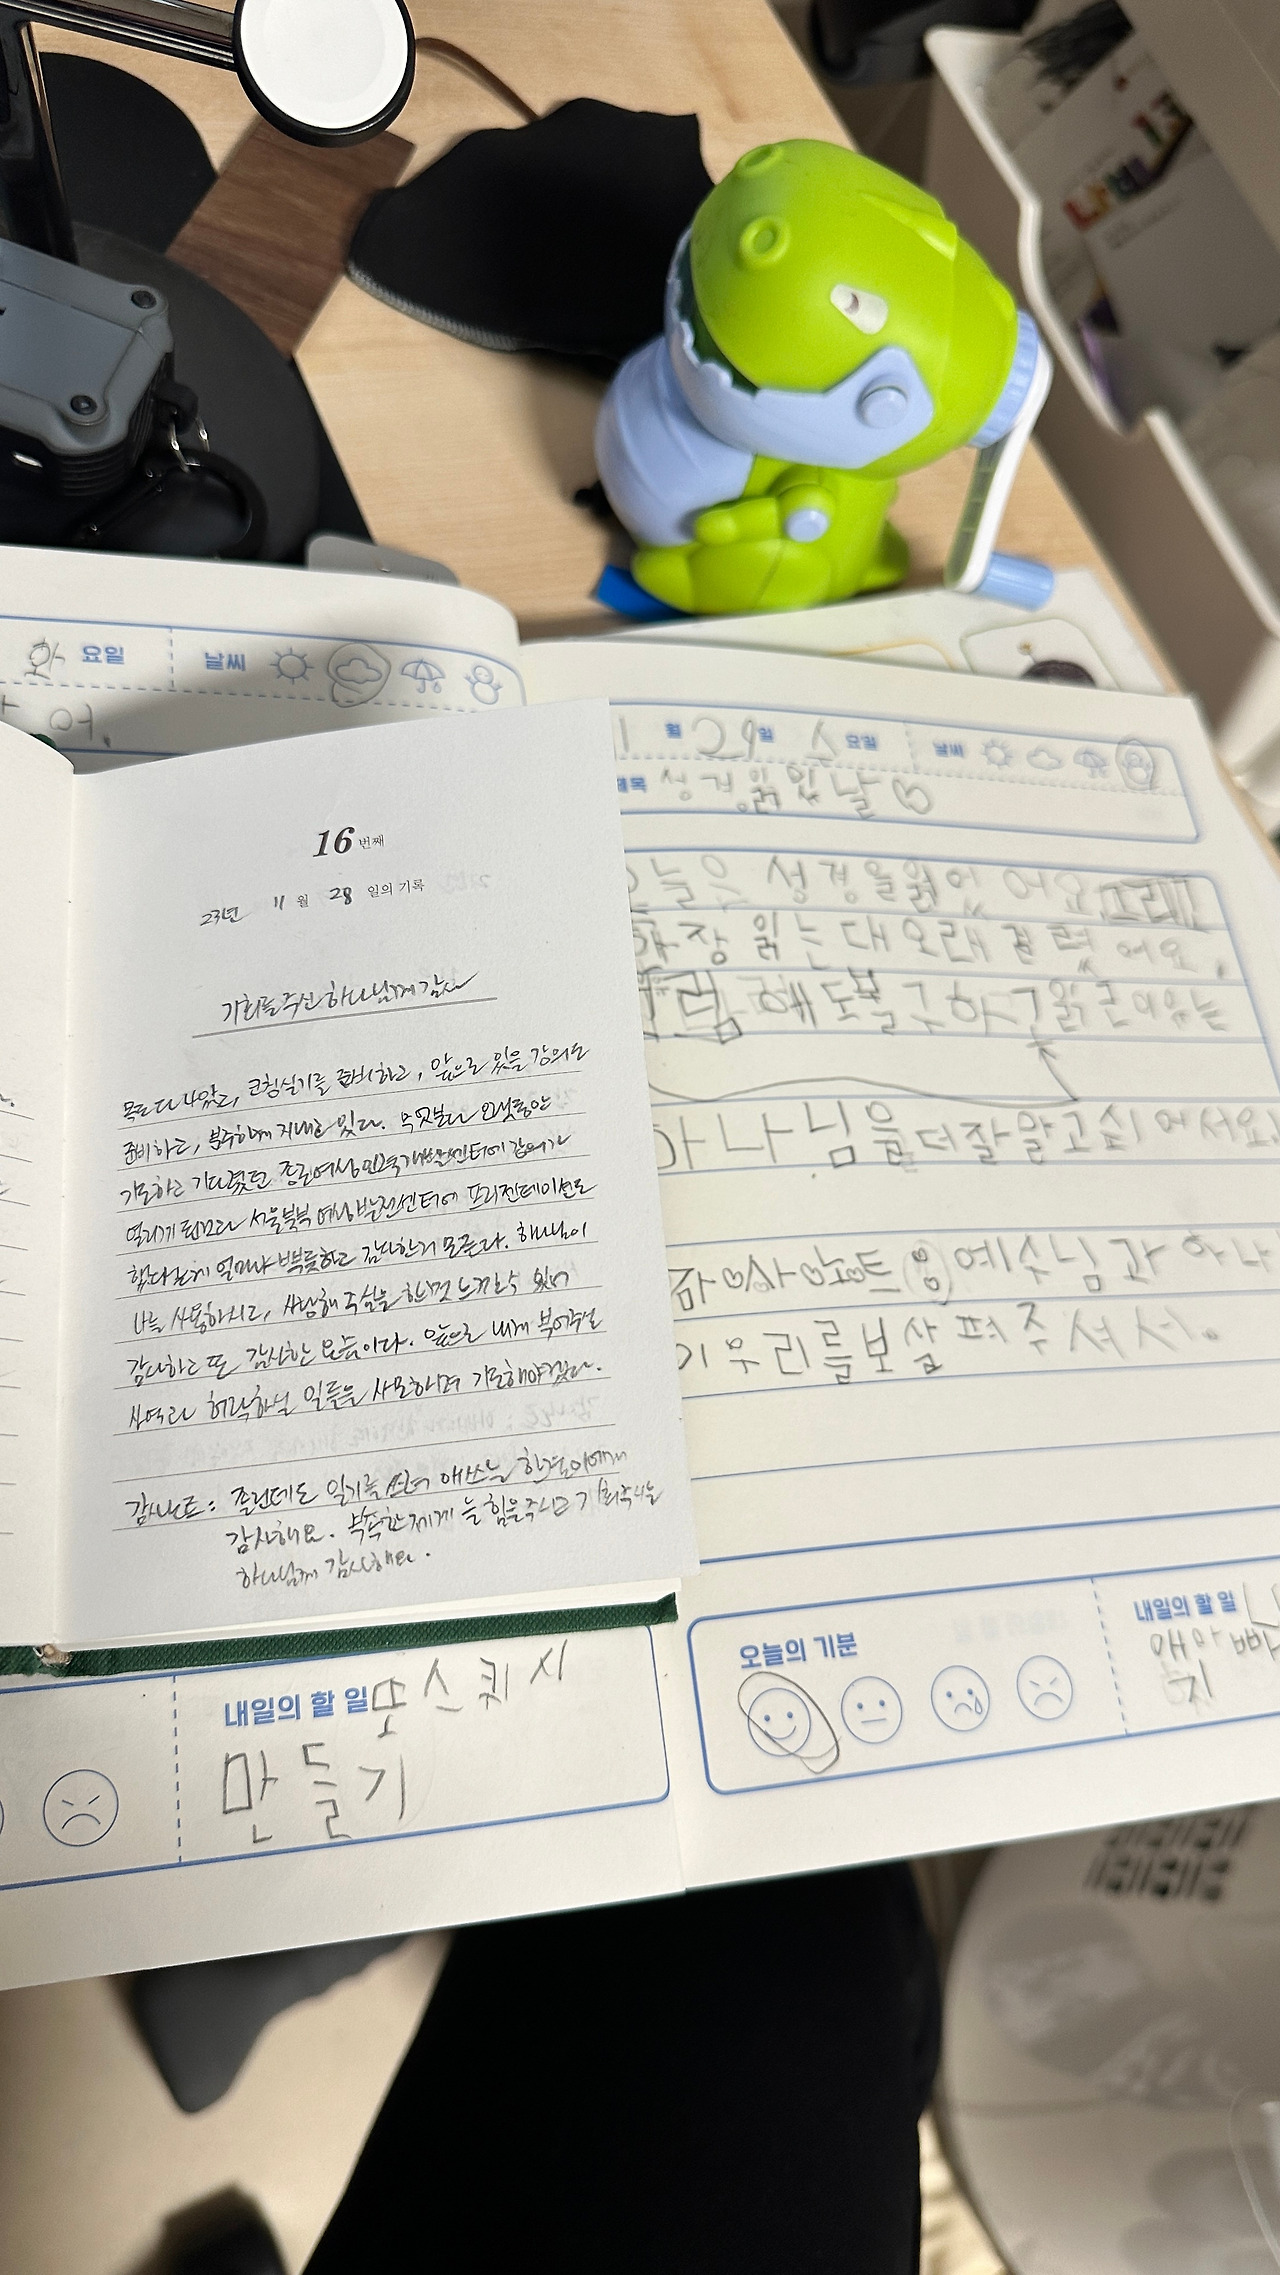 화 요일 날씨
어.
16 번째
23년 11 월 28 일의 기록
기회를 주신 하나님께 감사
목도 다 나았고, 코칭실기를 준비하고, 앞으로 있을 강의도
준비하고, 분주하게 지내고 있다. 무엇보다 오랫동안
기도하고 기다렸던 종로여성인력개발센터에 강의가
열리게 된것과 서울북부 여성발전센터에 프리젠테이션도
했다는게 얼마나 뿌듯하고 감사한지 모른다. 하나님이
나를 사용하시고, 사랑해 주심을 한껏 느끼수 있어
감사하고 또 감사한 요즘이다. 앞으로 내게 부어주실
사역과 허락하실 일들을 사모하며 기도해야겠다.
감사노트: 졸린데도 일기를 쓰려 애쓰는
감사해요. 부족한 제게 늘 힘을 주시고 기회주시는
하나님께 감사해요.
내일의 할 일 모스퀴시
만들기
1 월 29일 수 요일 날씨
제목 성경읽있날
늘은 성경을읽었어요
장 읽는대오래걸렸어요.
림 헤도불구하고읽근이유는
하나님을더잘알고싶어서요!
감사노트 예수님과 하나
이우리를보살펴주셔서.
오늘의 기분
내일의 할 일